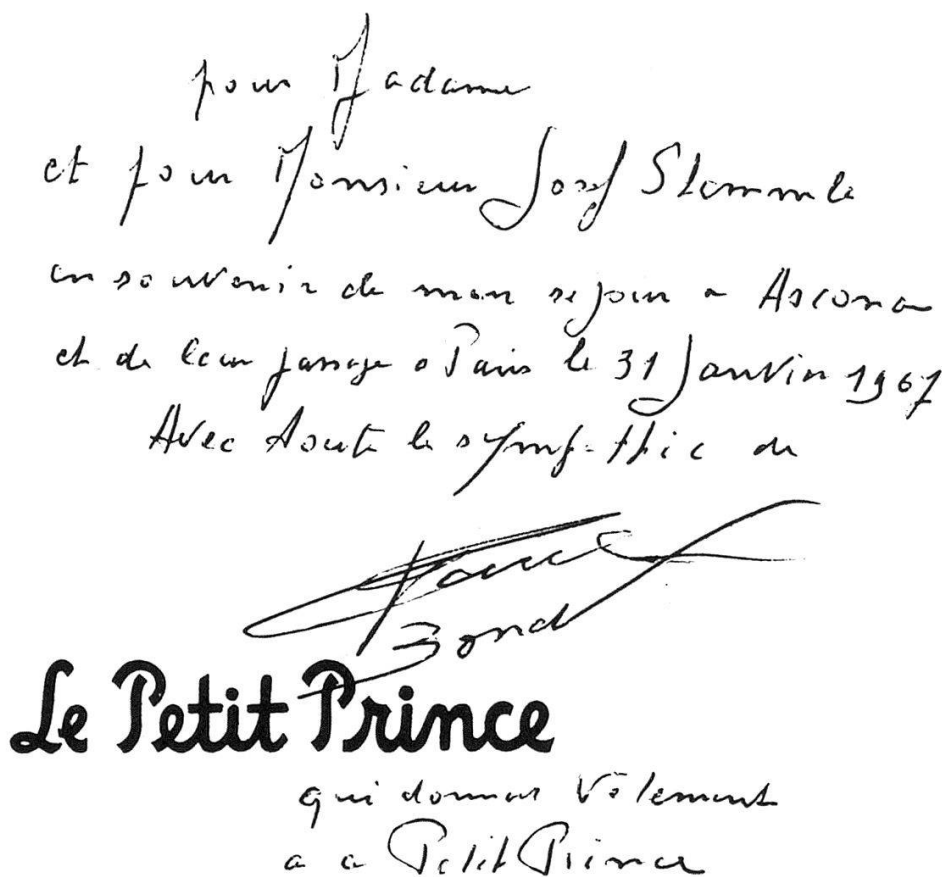 pour Madame
et pour Monsieur Josef Stemmle
en souvenir de mon sejour a Ascona
et de leur passage a Paris le 31 Janvier 1967
Avec toute la sympathie de
Bonet
Le Petit Prince
qui donna
a ce Petit Prince